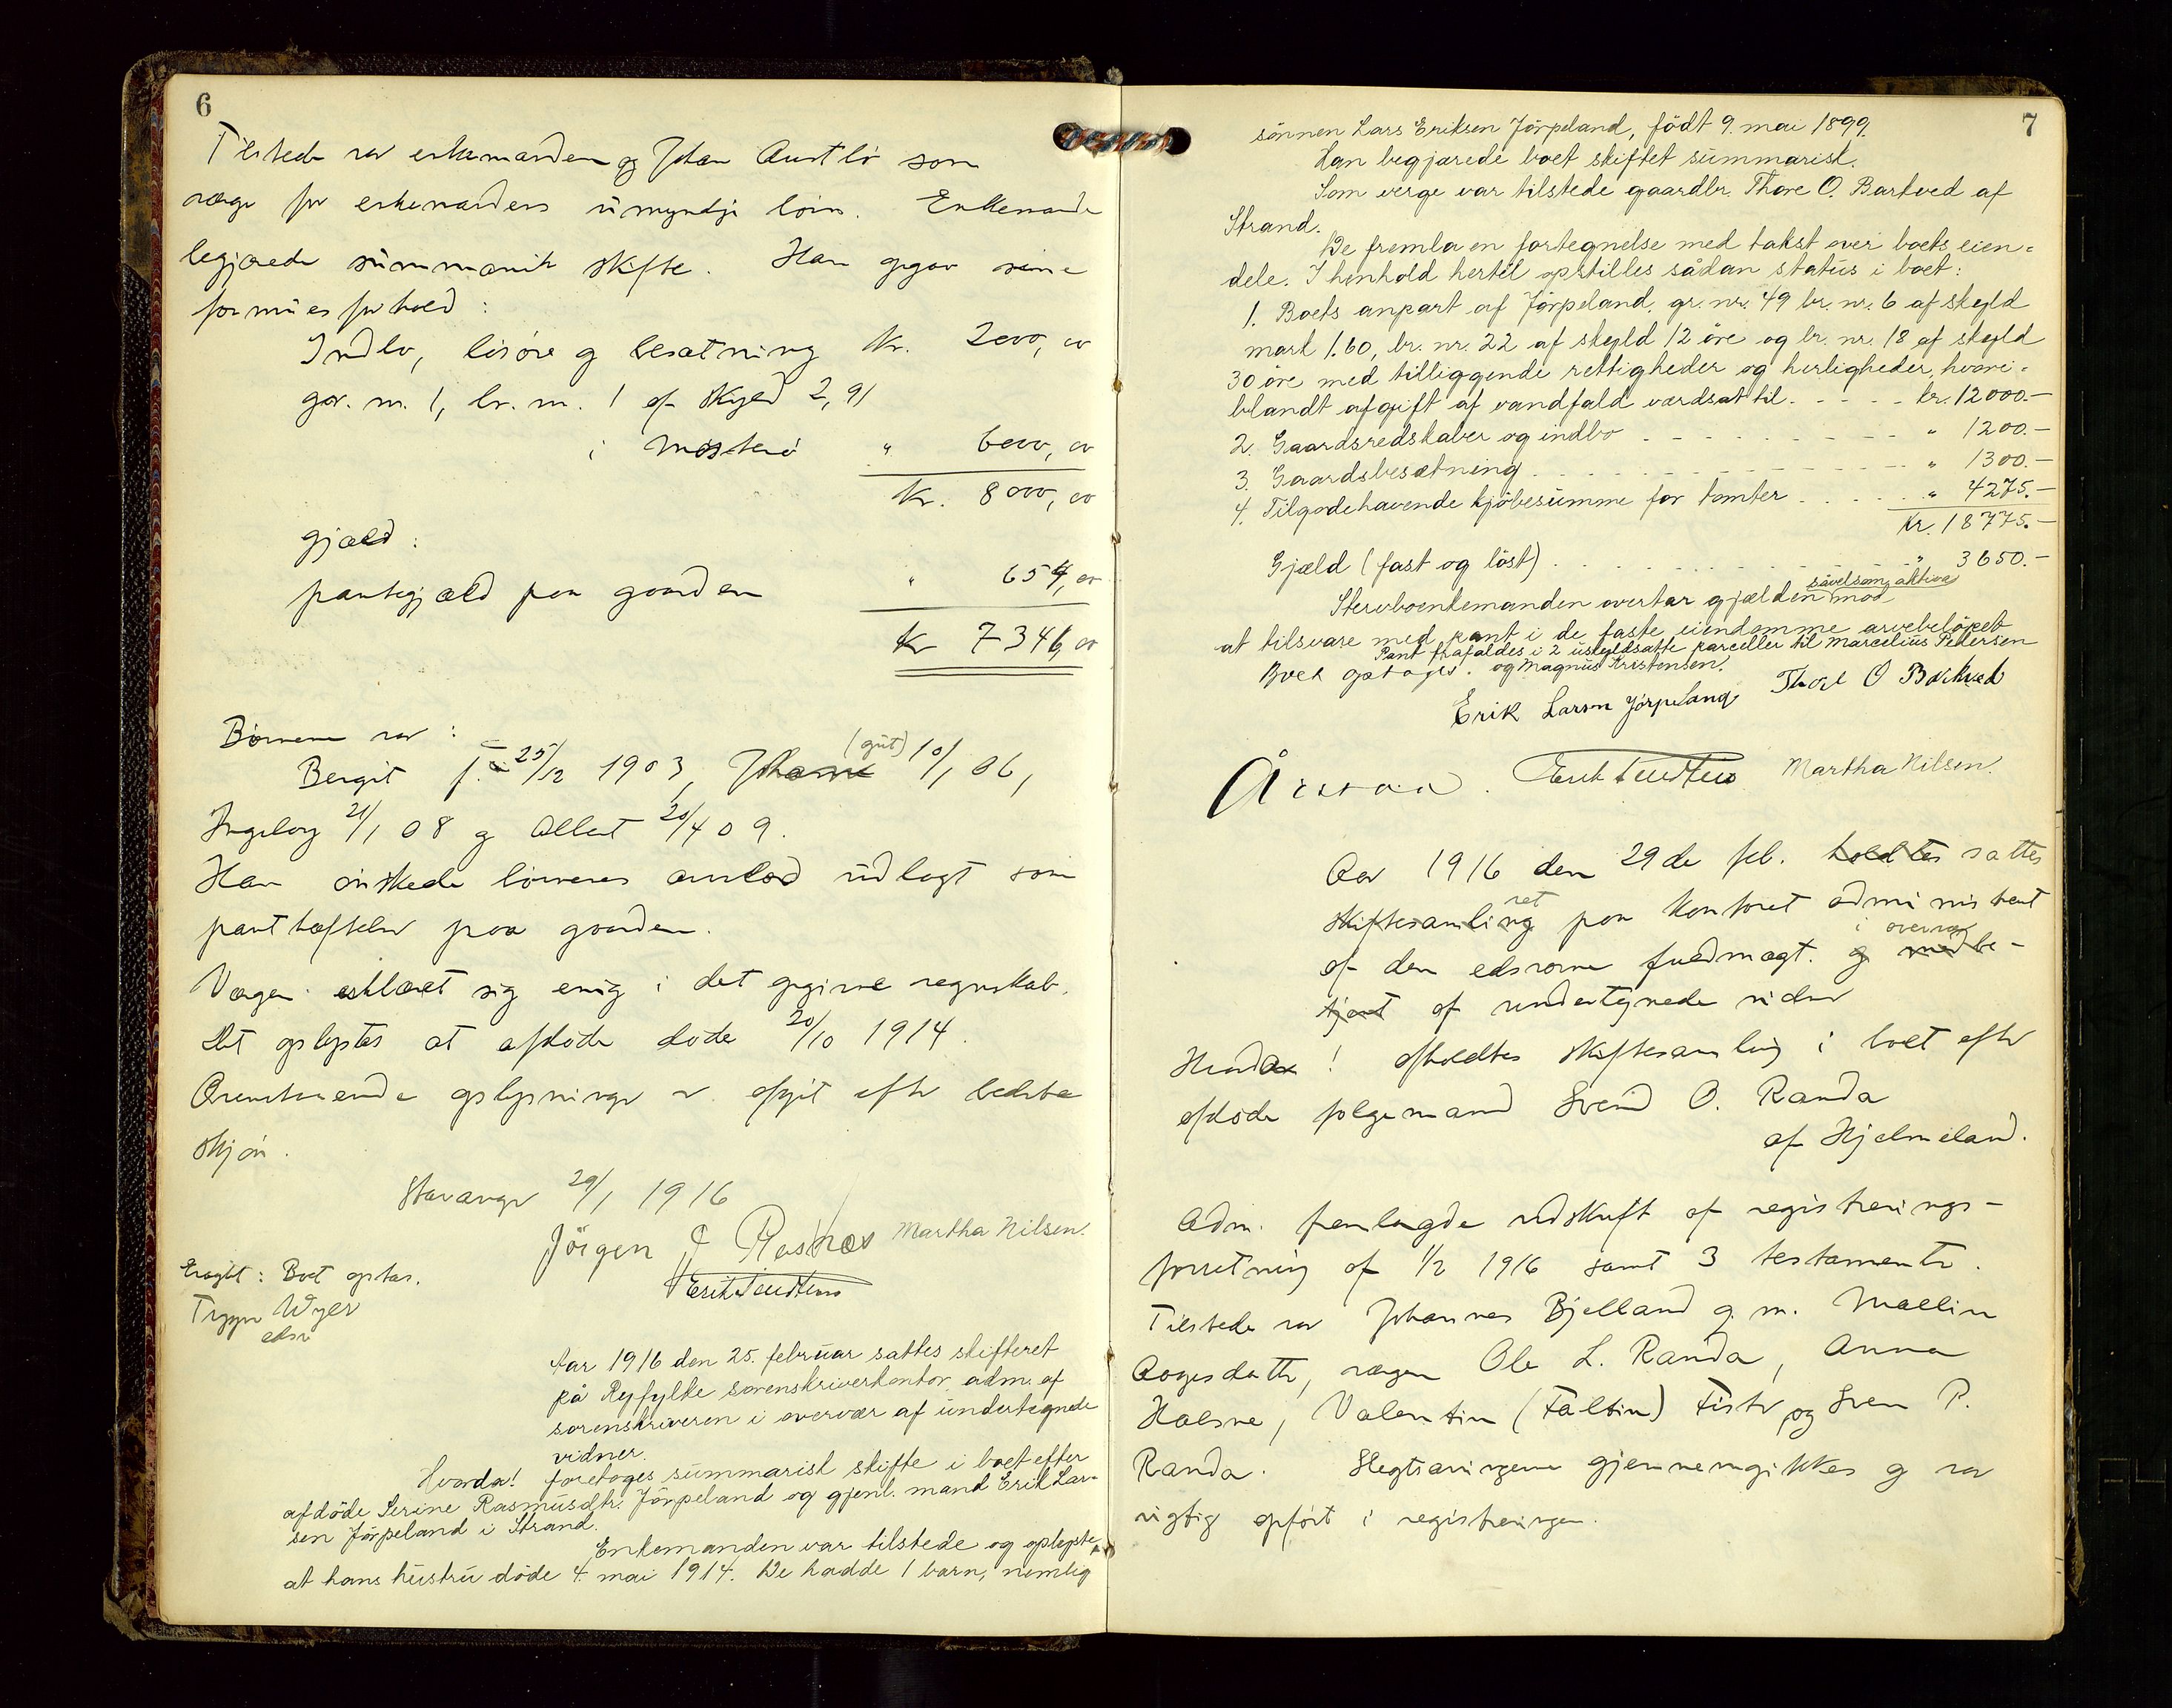 6
Tilstede var enkemanden og Johan Austbø som
værge for enkemandens umyndige børn. Enkemanden
begjærede summarisk skifte. Han opgav sine
formuesforhold:
Indbo, løsøre og besætning Kr. 2000,00
gr. nr. 1, br. nr. 1 af skyld 2,91
i Mosterø " 6000,00
Kr. 8000,00
gjæld:
pantegjæld paa gaarden " 654,00
Kr 7346,00
Børnene var:
Bergit f. 25/12 1903, Johan (gut) 10/1 06,
Ingeborg 21/1 08 og Albert 20/4 09.
Han ønskede børnenes arvelod udlagt som
panthæftelse paa gaarden.
Værgen erklæret sig enig i det opgivne regnskab.
Det oplystes at afdøde døde 20/10 1914.
Ovenstaaende oplysninger er afgit efter bedste
skjøn.
Stavanger 29/1 1916
Jörgen J Rosnæs Martha Nilsen.
Eragtet: Boet optas.
Trygve Wyer
edsv
Aar 1916 den 25. februar sattes skifteret
på Ryfylke sorenskriverkontor adm. af
sorenskriveren i overvær af undertegnede
vidner.
Hvorda! foretoges summarisk skifte i boet efter
afdöde Serine Rasmusdtr. Jörpeland og gjenl. mand Erik Lar-
sen Jörpeland i Strand.
Enkemanden var tilstede og oplyste
at hans hustru döde 4. mai 1914. De hadde 1 barn, nemlig
7
sönnen Lars Eriksen Jörpeland, födt 9. mai 1899.
Han begjærede boet skiftet summarisk.
Som verge var tilstede gaardbr. Thore O. Barkved af
Strand.
De fremla en fortegnelse med takst over boets eien=
dele. I henhold hertil opstilles sådan status i boet:
1. Boets anpart af Jörpeland. gr. nr. 49 br. nr. 6 af skyld
mark 1.60, br. nr. 22 af skyld 12 öre og br. nr. 18 af skyld
30 öre med tilliggende rettigheder og herligheder, hvori-
blandt afgift af vandfald værdsat til - - - - kr. 12000.-
2. Gaardsredskaber og indbo - - - - " 1200.-
3. Gaardsbesætning - - - - " 1300.-
4. Tilgodehavende kjöbesumme for tomter - - - - " 4275.-
Kr. 18775.-
Gjæld (fast og löst) - - - - " 3650.-
såvelsom aktiva
Stervboenkemanden overtar gjælden mod
at tilsvare med pant i de faste eiendomme arvebelöpet
Pant frafaldes i 2 uskyldsatte parceller til Marcelius Pedersen
Boet optages. og Magnus Kristensen.
Erik Larson Jörpeland Thore O Barkved
Martha Nilsen.
Aar 1916 den 29de feb. holdtes sattes
skiftesamling ret paa kontoret administrert
af den edsvorne fuldmægt. og med be- i overvær
tjent af undertegnede vidner
Hvorda! afholdtes skiftesamling i boet efter
afdøde følgemand Svend O. Randa
af Hjelmeland.
Adm. fremlagde udskrift af registrerings-
forretning af 1/2 1916 samt 3 testamenter.
Tilstede var Johannes Bjelland g. m. Mallin
Aagesdatter, værgen Ole L. Randa, Anna
Halsne, Valentin (Faltin) Fister og Sven P.
Randa. Slegtsarvingene gjennemgikkes og var
rigtig opført i registreringen.